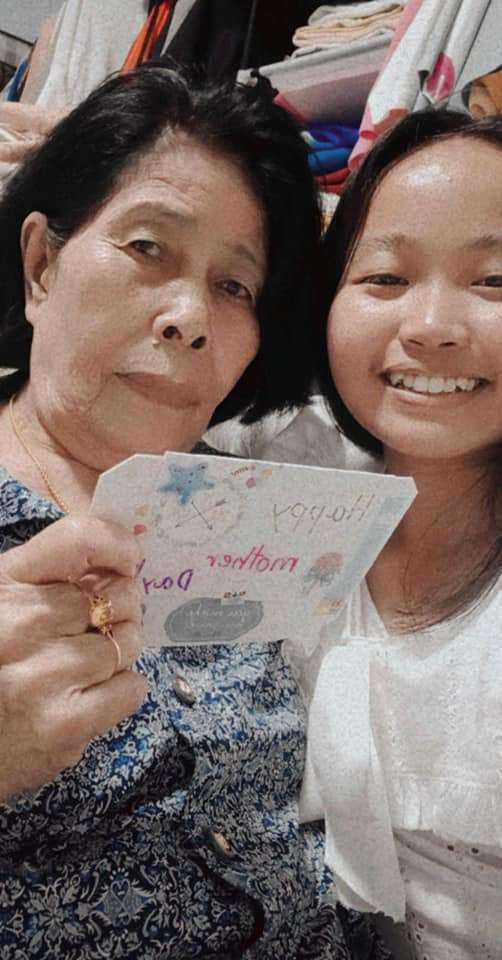 Happy
mother
Day